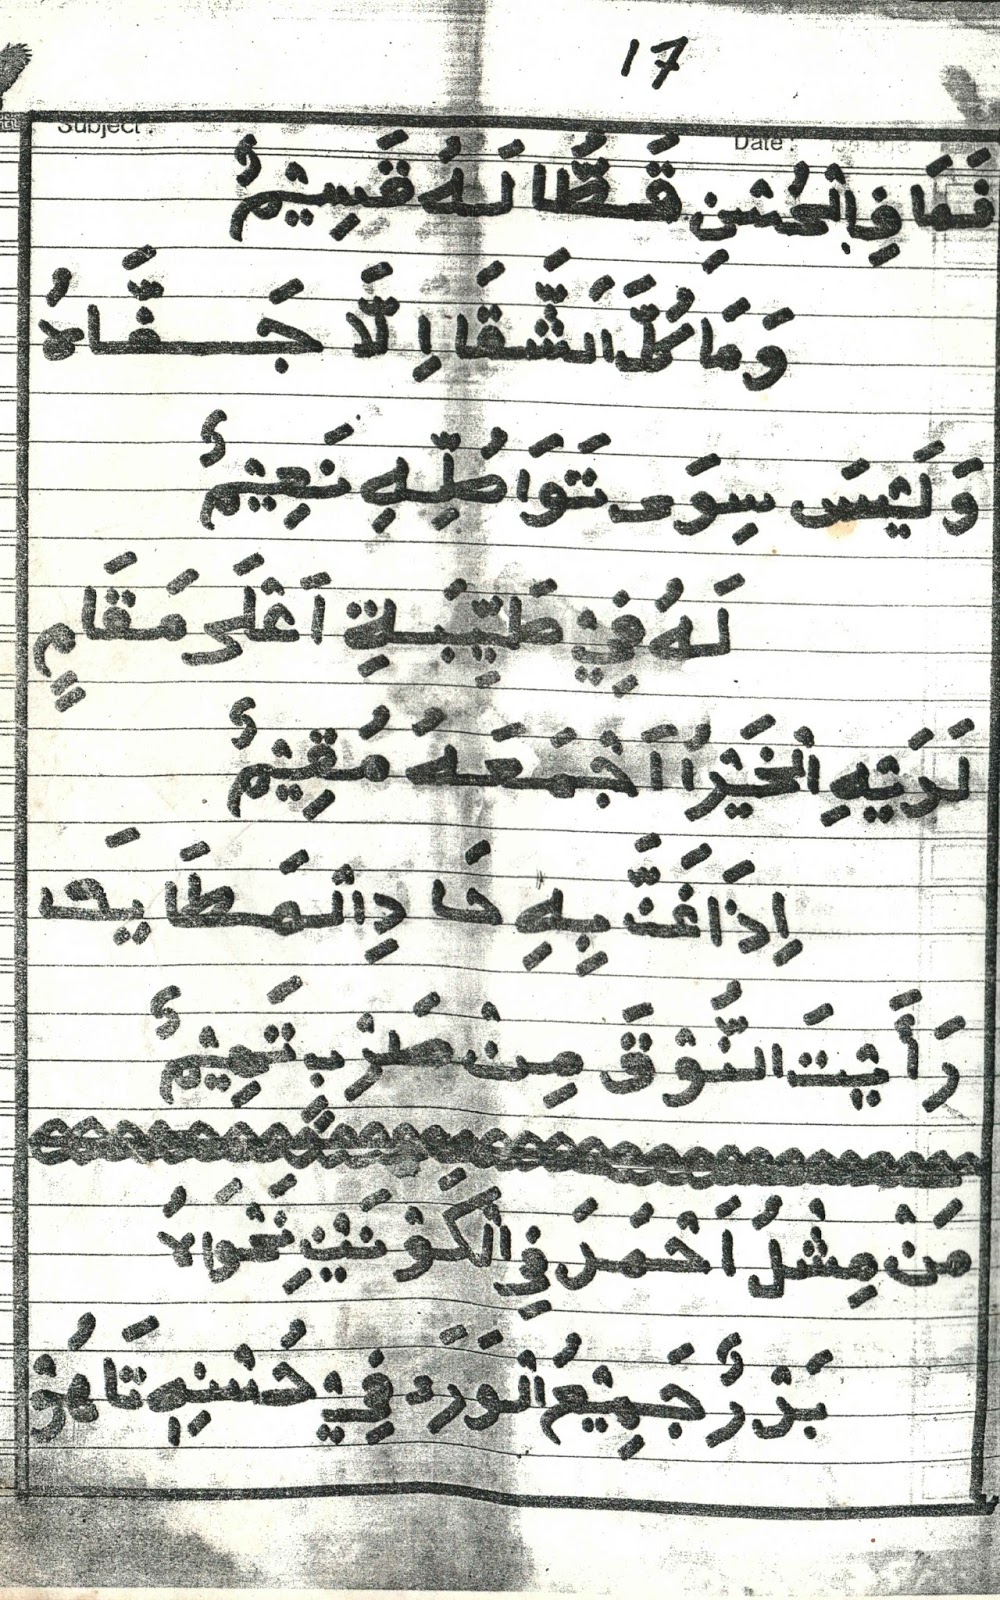 17
Subject :
Date :
فَمَا فِي الْحُسْنِ قَطُّا لَهُ قَسِيْمٌ
وَمَا كُلَّ الشَّقَا اِلَّا جَفَّاهُ
وَلَيْسَ سِوَى تَوَاصُلِّهِ نَعِيْمٌ
لَهُ فِيْ طَيِّبَةِ اَعْلَى مَقَامٍ
لَدَيْهِ الْخَيْرُ اَاجْمَعَهُ مُقِيْمٌ
اِذَا غَنَّ بِهِ حَادِ الْمَطَايَ
رَأَيْتَ النُّوْقَ مِنْ طَرْبٍ تَهِيْمٌ
مَنْ مِثْلُ اَحْمَدَ فِي الْكَوْنَيْنِ نَهْوَاهُ
بَدْرٌ جَمِيْعُ الْوَرَى فِيْ حُسْنِهِ تَاهُوْ